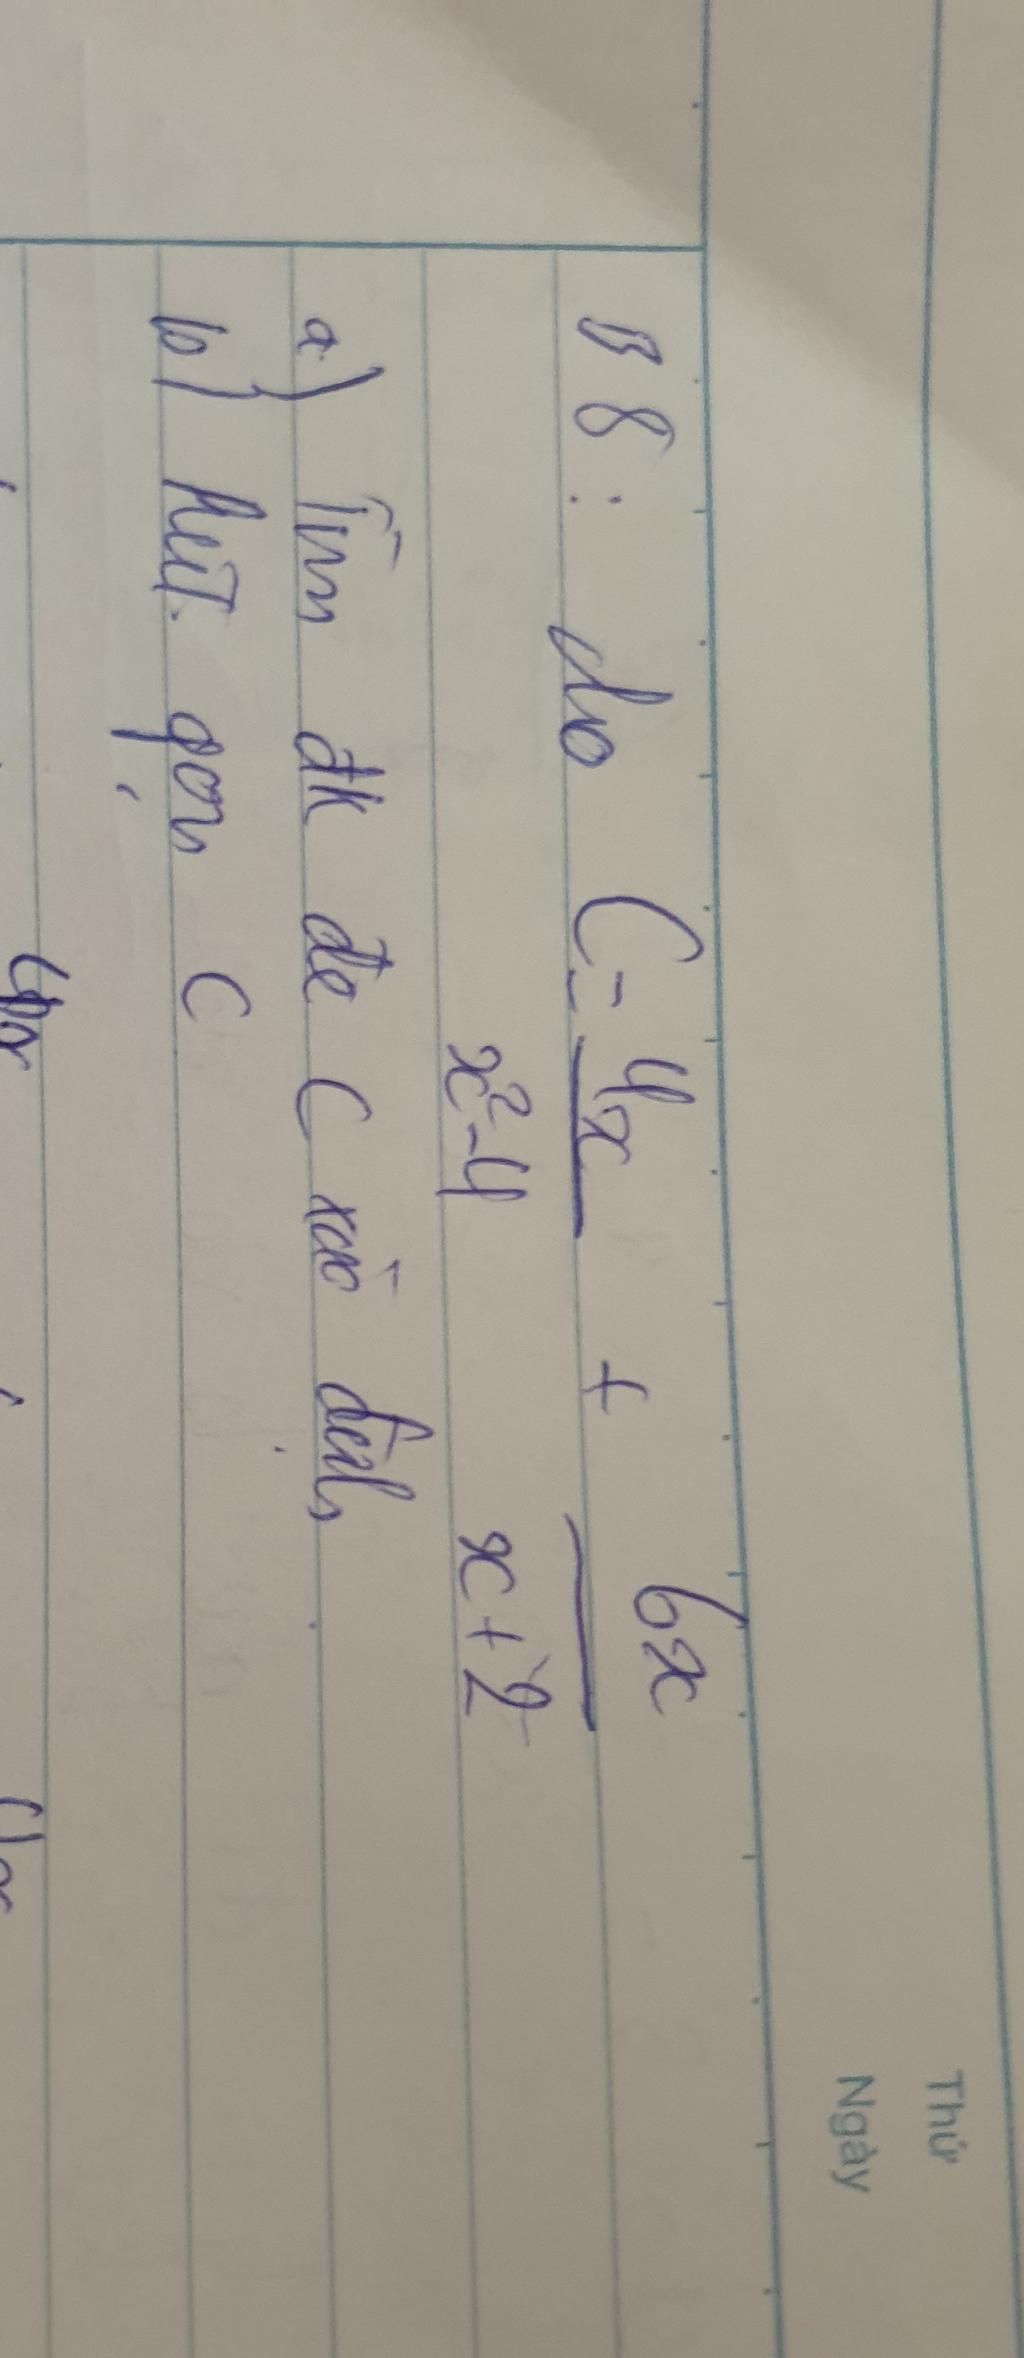 Thứ
Ngày
B8: Cho C = 4x + 6x
x²-4 x+2
a) Tìm đk để C xác định
b) Rút gọn C